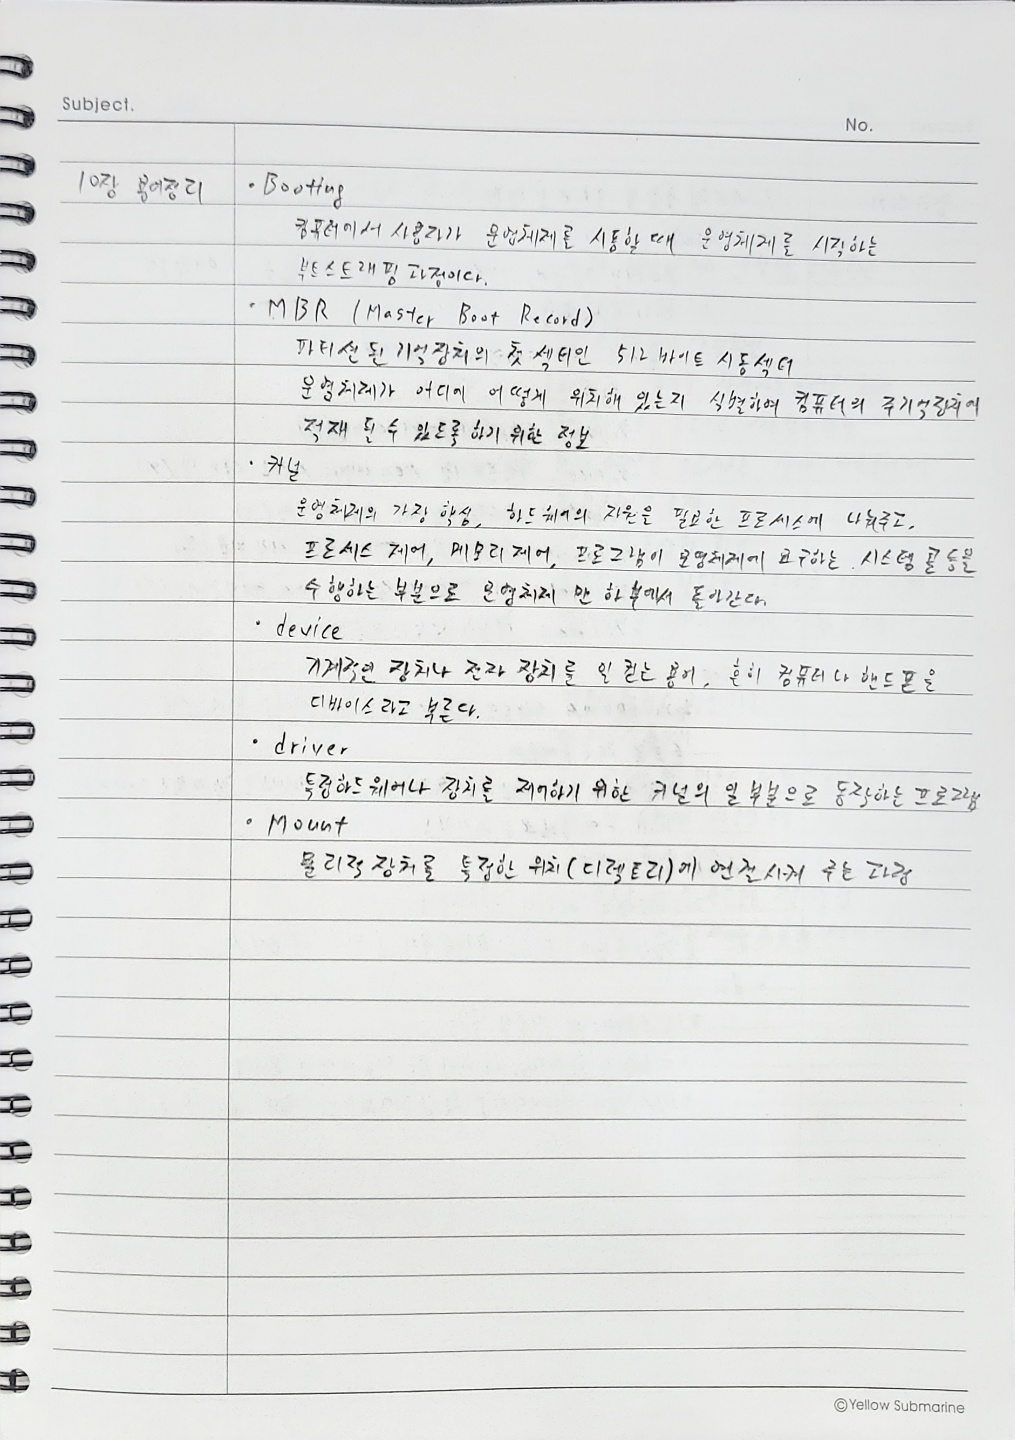 Subject.
No.
10장 용어정리
· Booting
컴퓨터에서 사용자가 운영체제를 시동할 때 운영체제를 시작하는
부트스트래핑 과정이다.
· MBR (Master Boot Record)
파티션 된 기억장치의 첫 섹터인 512 바이트 시동섹터
운영체제가 어디에 어떻게 위치해 있는지 식별하여 컴퓨터의 주기억장치에
적재 될 수 있도록 하기 위한 정보
· 커널
운영체제의 가장 핵심, 하드웨어의 자원을 필요한 프로세스에 나눠주고,
프로세스 제어, 메모리 제어, 프로그램이 운영체제에 요구하는 시스템 콜 등을
수행하는 부분으로 운영체제 맨 하부에서 돌아간다.
· device
기계적인 장치나 전자 장치를 일컫는 용어, 흔히 컴퓨터나 핸드폰을
디바이스라고 부른다.
· driver
특정하드웨어나 장치를 제어하기 위한 커널의 일부분으로 동작하는 프로그램
· Mount
물리적 장치를 특정한 위치(디렉토리)에 연결시켜 주는 과정
©Yellow Submarine